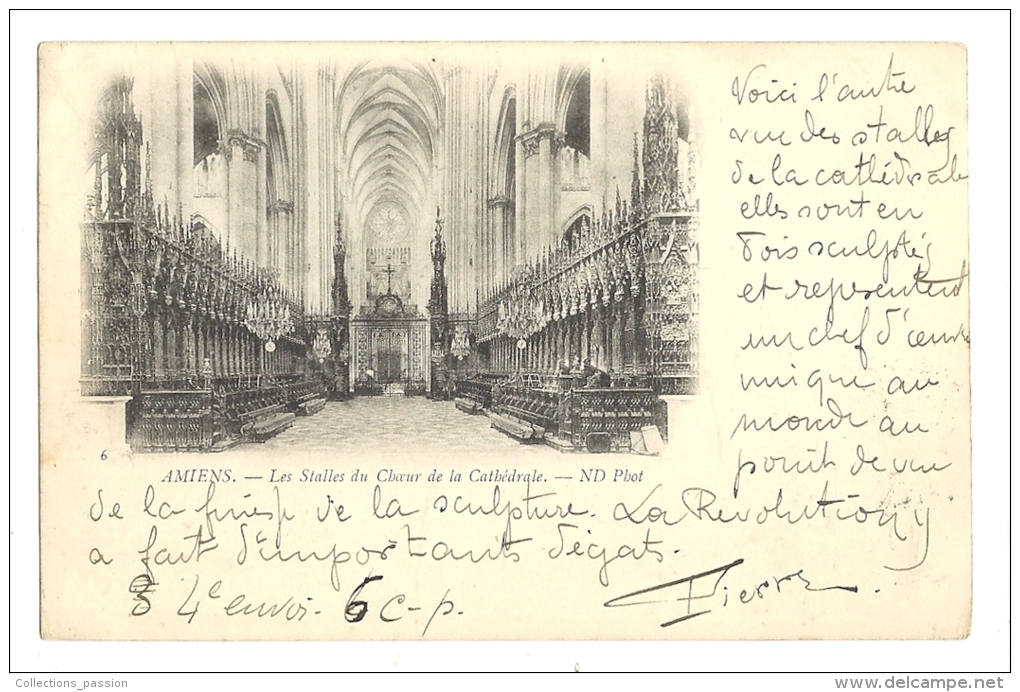 Voici l'autre
vue des stalles
de la cathédrale
elles sont en
bois sculptés
et représentent
un chef d'œuvre
unique au
monde au
point de vue
6
AMIENS. — Les Stalles du Chœur de la Cathédrale. — ND Phot
de la finesse de la sculpture. La Revolution y
a fait d'importants dégats.
4e envoi. 6 c-p.
Pierre.
Collections_passion
http://www.delcampe.net